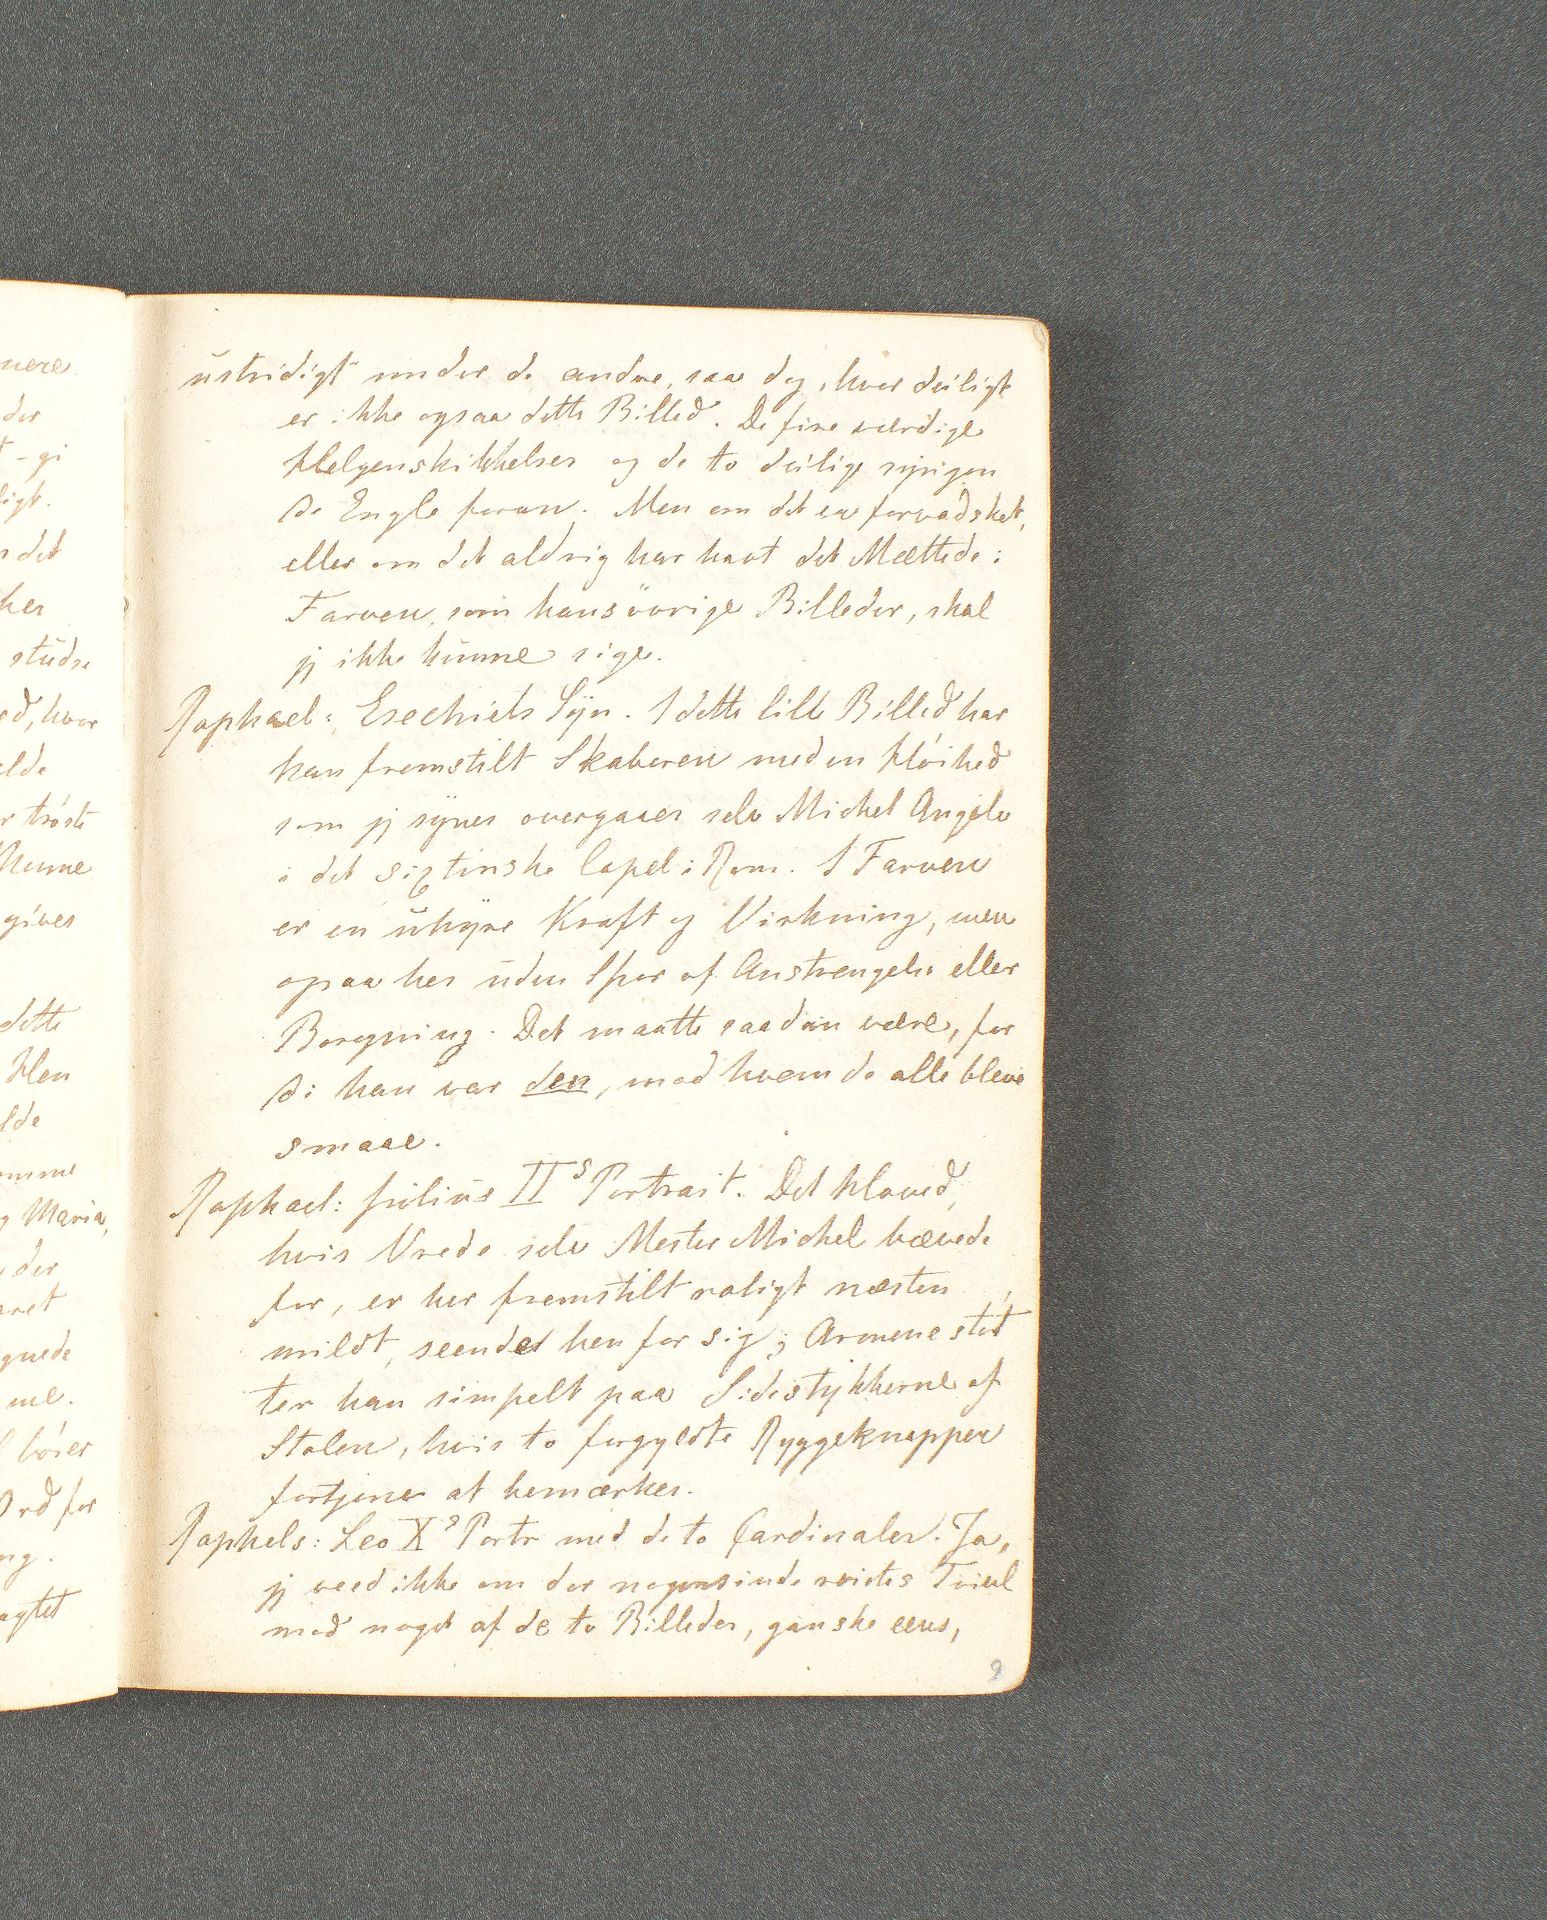 ustridigt under de andre, saa dog, hvor deiligt
er ikke ogsaa dette Billed. De fire værdige
Helgenskikkelser og de to deilige syngen
de Engle foran. Men om det er forvadsket,
eller om det aldrig har havt det Mættede i
Farven, som hans övrige Billeder, skal
jg ikke kunne sige.
Raphael: Esechiels Syn. I dette lille Billed har
han fremstilt Skaberen med en Höihed
som jg synes overgaaer selv Michel Angelo
i det sixtinske Capel i Rom. I Farven
er en uhyre Kraft og Virkning, men
ogsaa her uden Spor af Anstrengelse eller
Beregning. Det maatte saadan være, for
di han var den, mod hvem de alle bleve
smaae.
Raphael: Julius II s Portrait. Det Hoved,
hvis Vrede selv Mester Michel bævede
for, er her fremstilt roligt næsten
mildt, seende hen for sig; Armene støt
ter han simpelt paa Sidestykkerne af
Stolen, hvis to forgyldte Ryggeknapper
fortjener at bemærkes.
Raphels: Leo X s Portr med de to Cardinaler. Ja,
jg veed ikke om der nogensinde reistes Tvivl
mod noget af de to Billeder, ganske eens,
9
mere.
der
t-gi
ligt.
n det
her
studse
ed, hvor
elde
r trøste
gives
dette
Hen
lde
omme
g Maria,
der
aret
gnede
me.
bører
Ord for
ng.
agtet